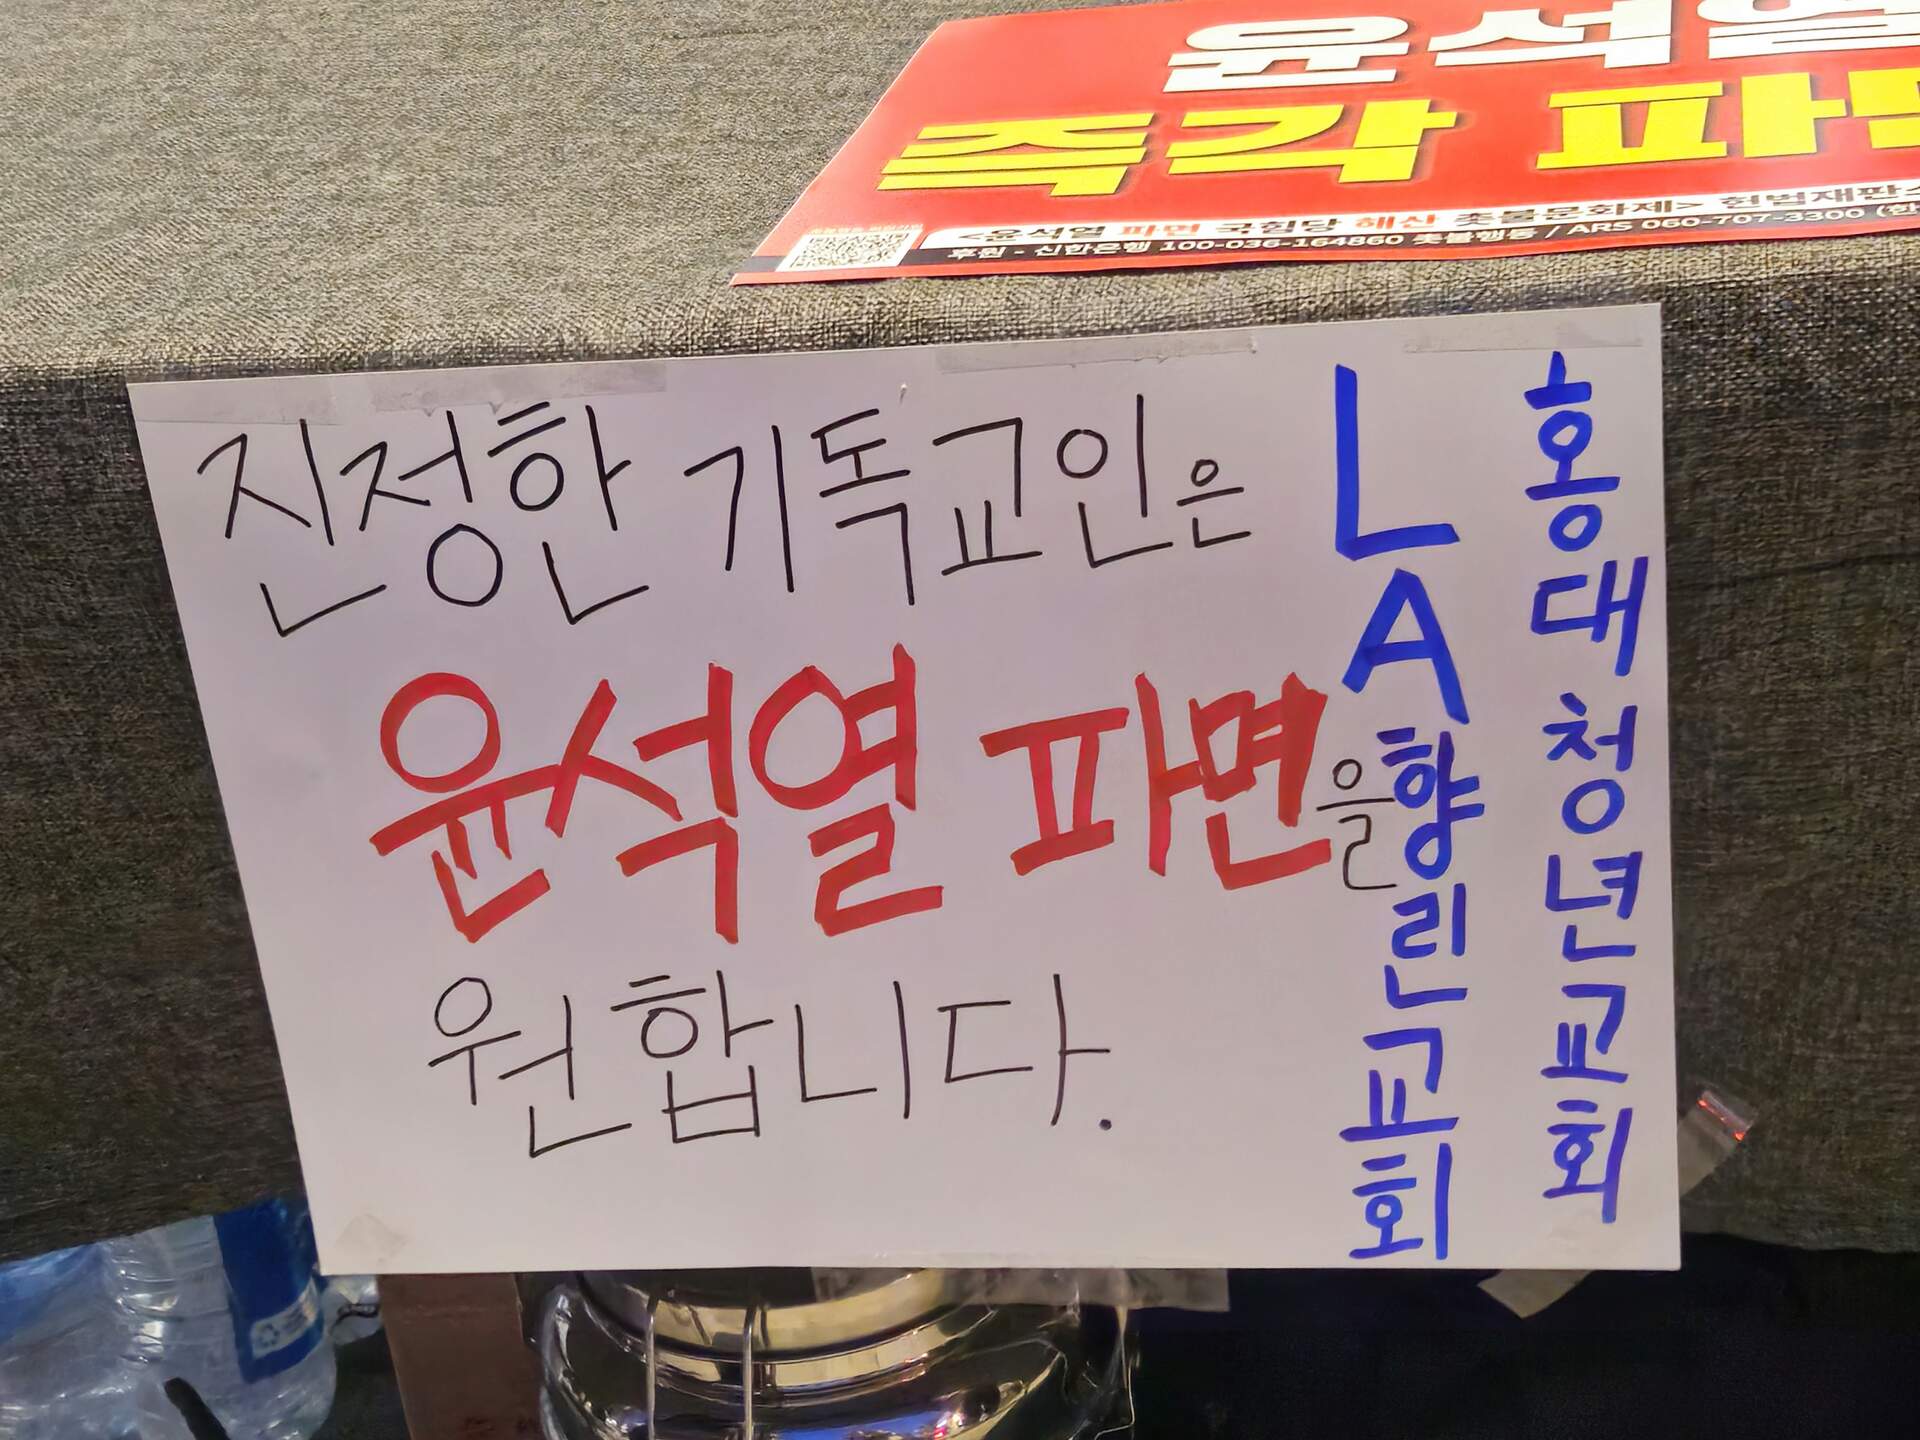 윤석열
즉각 파면
<윤석열 파면 국힘당 해산 촛불문화제> 헌법재판소
후원 - 신한은행 100-036-164860 촛불행동 / ARS 060-707-3300 (한
진정한 기독교인은
윤석열 파면을
원합니다.
LA향린교회
홍대청년교회